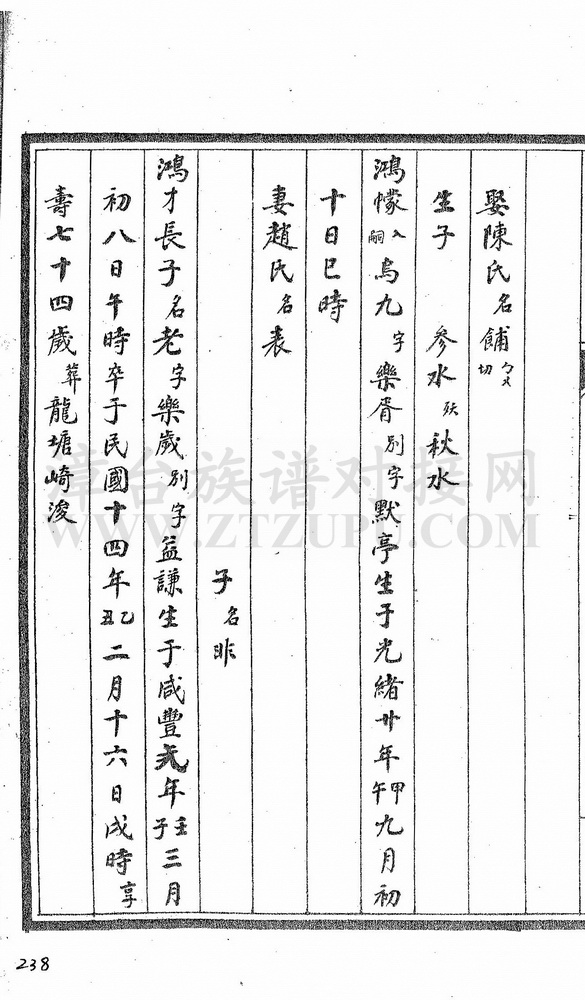 娶陳氏名餔ㄅㄨ切
生子 参水 殀 秋水
鴻幪入嗣烏九字樂胥別字默亭生于光緒廿年甲午九月初
十日巳時
妻趙氏名表
子名昨
鴻才長子名老字樂歲別字益謙生于咸豐元年壬子三月
初八日午時卒于民國十四年乙丑二月十六日戌時享
壽七十四歲葬龍塘崎浚
漳台族谱对接网
WWW.ZTZUPU.COM
238